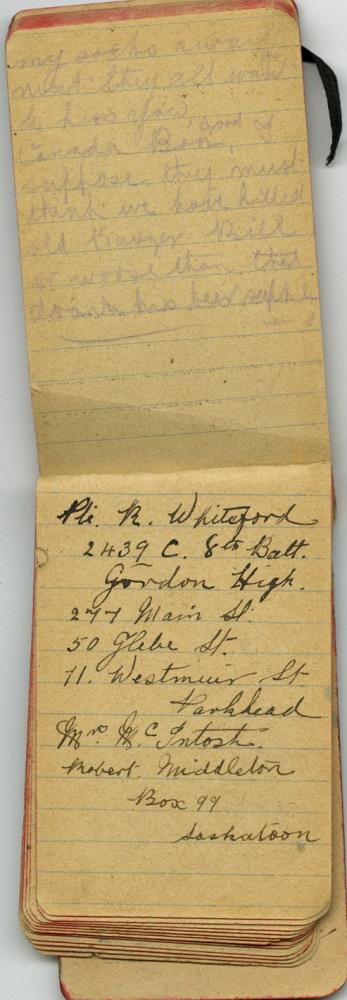 my socks away
next they all want
to kiss you,
Canada Boa, good of
suppose they must
think we have killed
old Kayzer Bill
or worse than that
drank his beer supply
Pte. R. Whiteford
2439 C. 8th Batt.
Gordon High.
277 Main St.
50 Glebe St.
11. Westmuir St
Parkhead
Mrs. McIntosh.
Robert Middleton
Box 99
Saskatoon